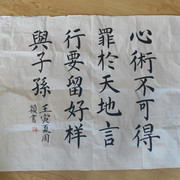 心術不可得
罪於天地言
行要留好樣
與子孫
壬寅夏周
書